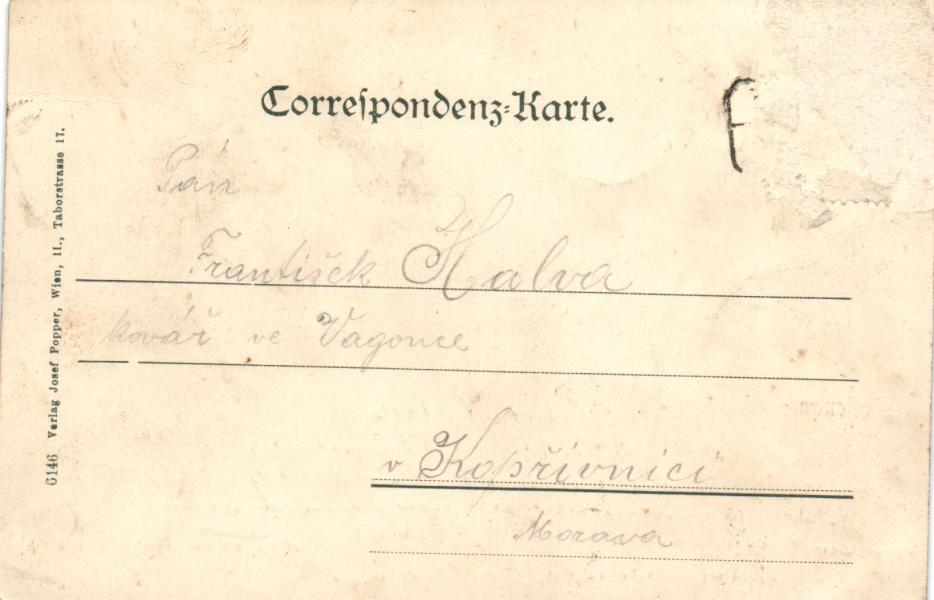 Correſpondenz-Karte.
Pán
František Halva
kovář ve Vagonce
v Kopřivnici
Morava
6146 Verlag Josef Popper, Wien, II., Taborstrasse 17.